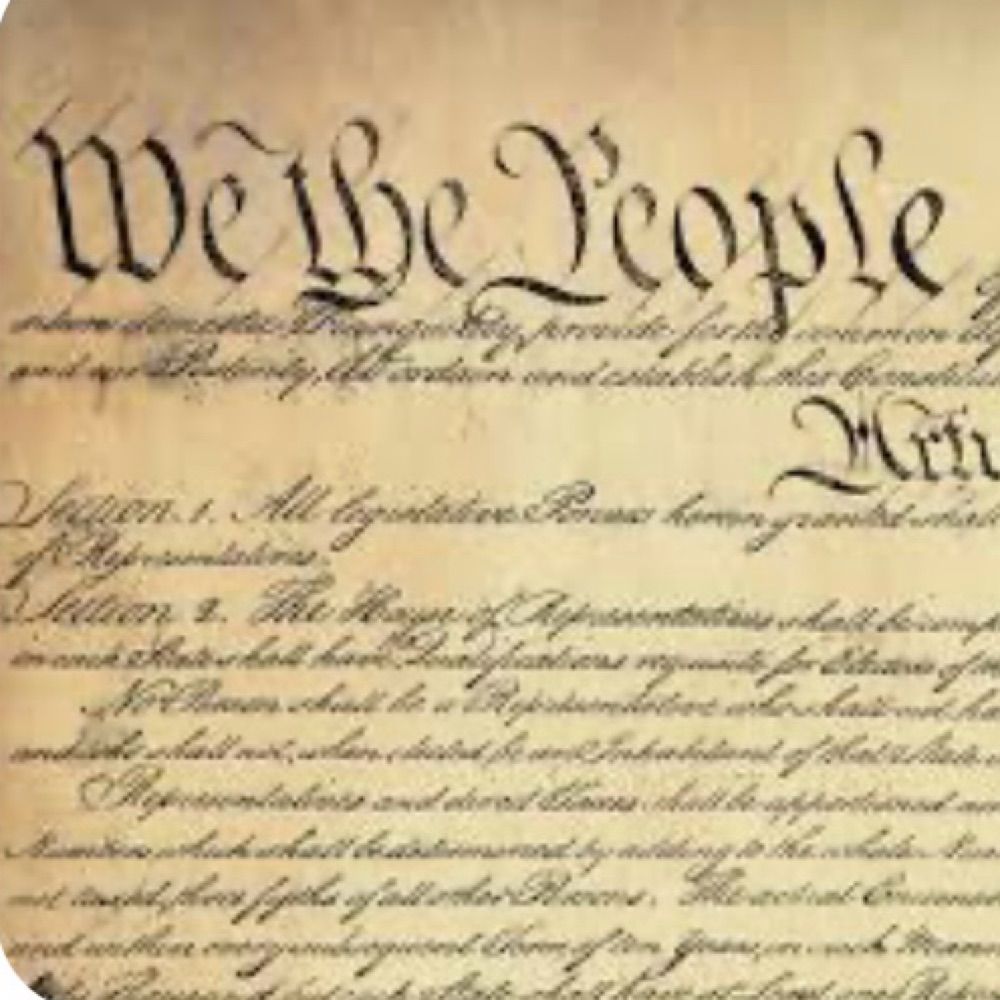 We the People
insure domestic Tranquility, provide for the common
and our Posterity, do ordain and establish this Constitu
Arti
Section. 1. All legislative Powers herein granted shall
of Representatives.
Section. 2. The House of Representatives shall be comp
in each State shall have Qualifications requisite for Electors of
No Person shall be a Representative who shall not ha
and who shall not, when elected, be an Inhabitant of that State
Representatives and direct Taxes shall be apportioned
Numbers, which shall be determined by adding to the whole Num
not taxed, three fifths of all other Persons. The actual Enumer
and within every subsequent Term of ten Years, in such Mann
each State shall have at Least one Repre